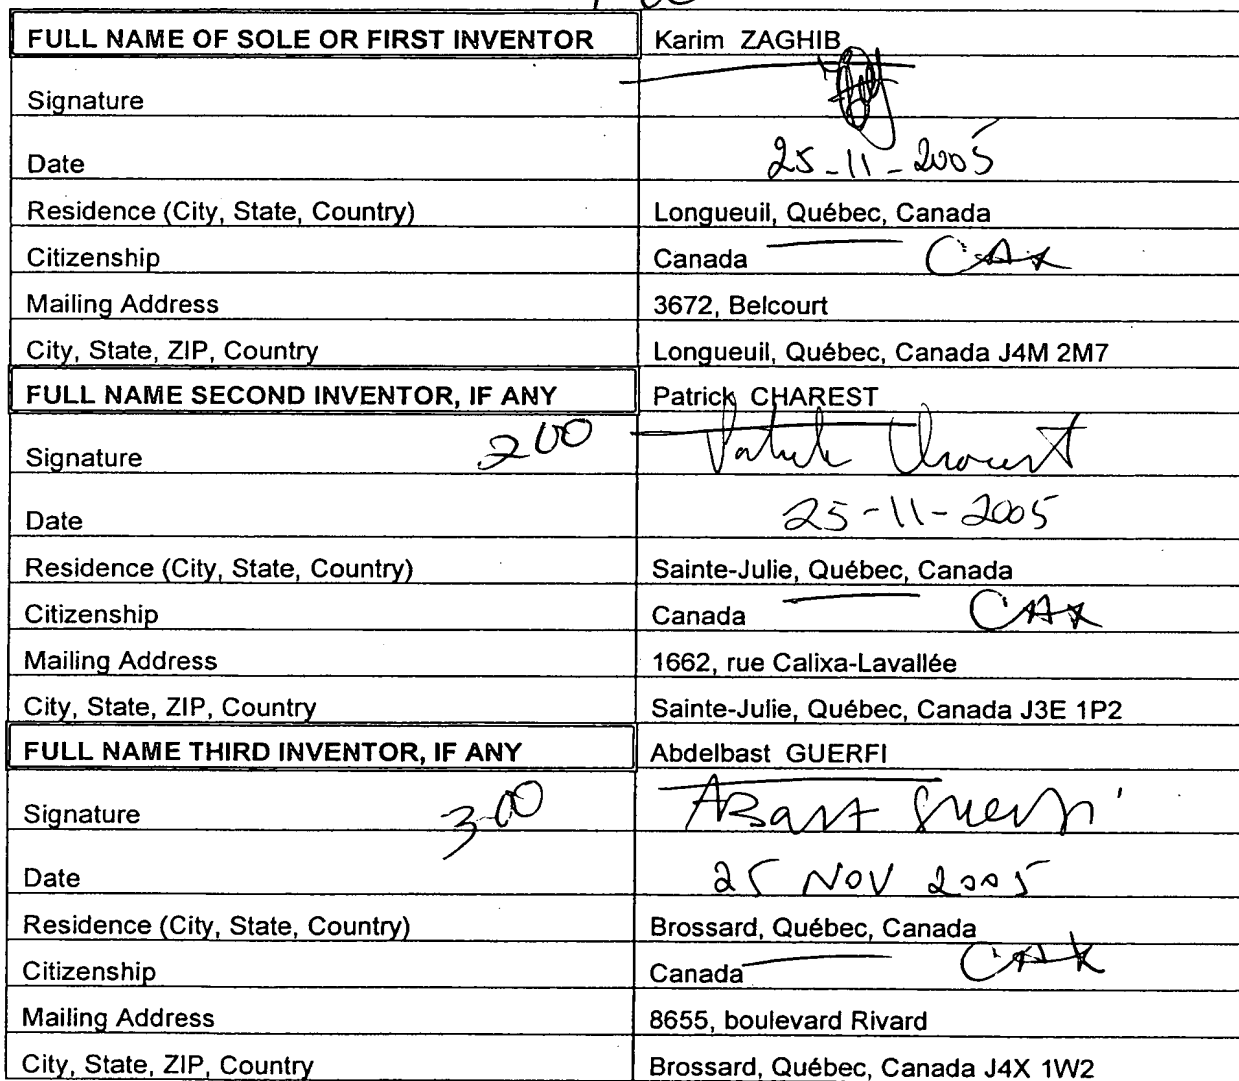 FULL NAME OF SOLE OR FIRST INVENTOR Karim ZAGHIB
Signature
Date 25-11-2005
Residence (City, State, Country) Longueuil, Québec, Canada
Citizenship Canada CAX
Mailing Address 3672, Belcourt
City, State, ZIP, Country Longueuil, Québec, Canada J4M 2M7
FULL NAME SECOND INVENTOR, IF ANY Patrick CHAREST
Signature 200
Date 25-11-2005
Residence (City, State, Country) Sainte-Julie, Québec, Canada
Citizenship Canada CAX
Mailing Address 1662, rue Calixa-Lavallée
City, State, ZIP, Country Sainte-Julie, Québec, Canada J3E 1P2
FULL NAME THIRD INVENTOR, IF ANY Abdelbast GUERFI
Signature 3-00
Date 25 NOV 2005
Residence (City, State, Country) Brossard, Québec, Canada
Citizenship Canada CAX
Mailing Address 8655, boulevard Rivard
City, State, ZIP, Country Brossard, Québec, Canada J4X 1W2